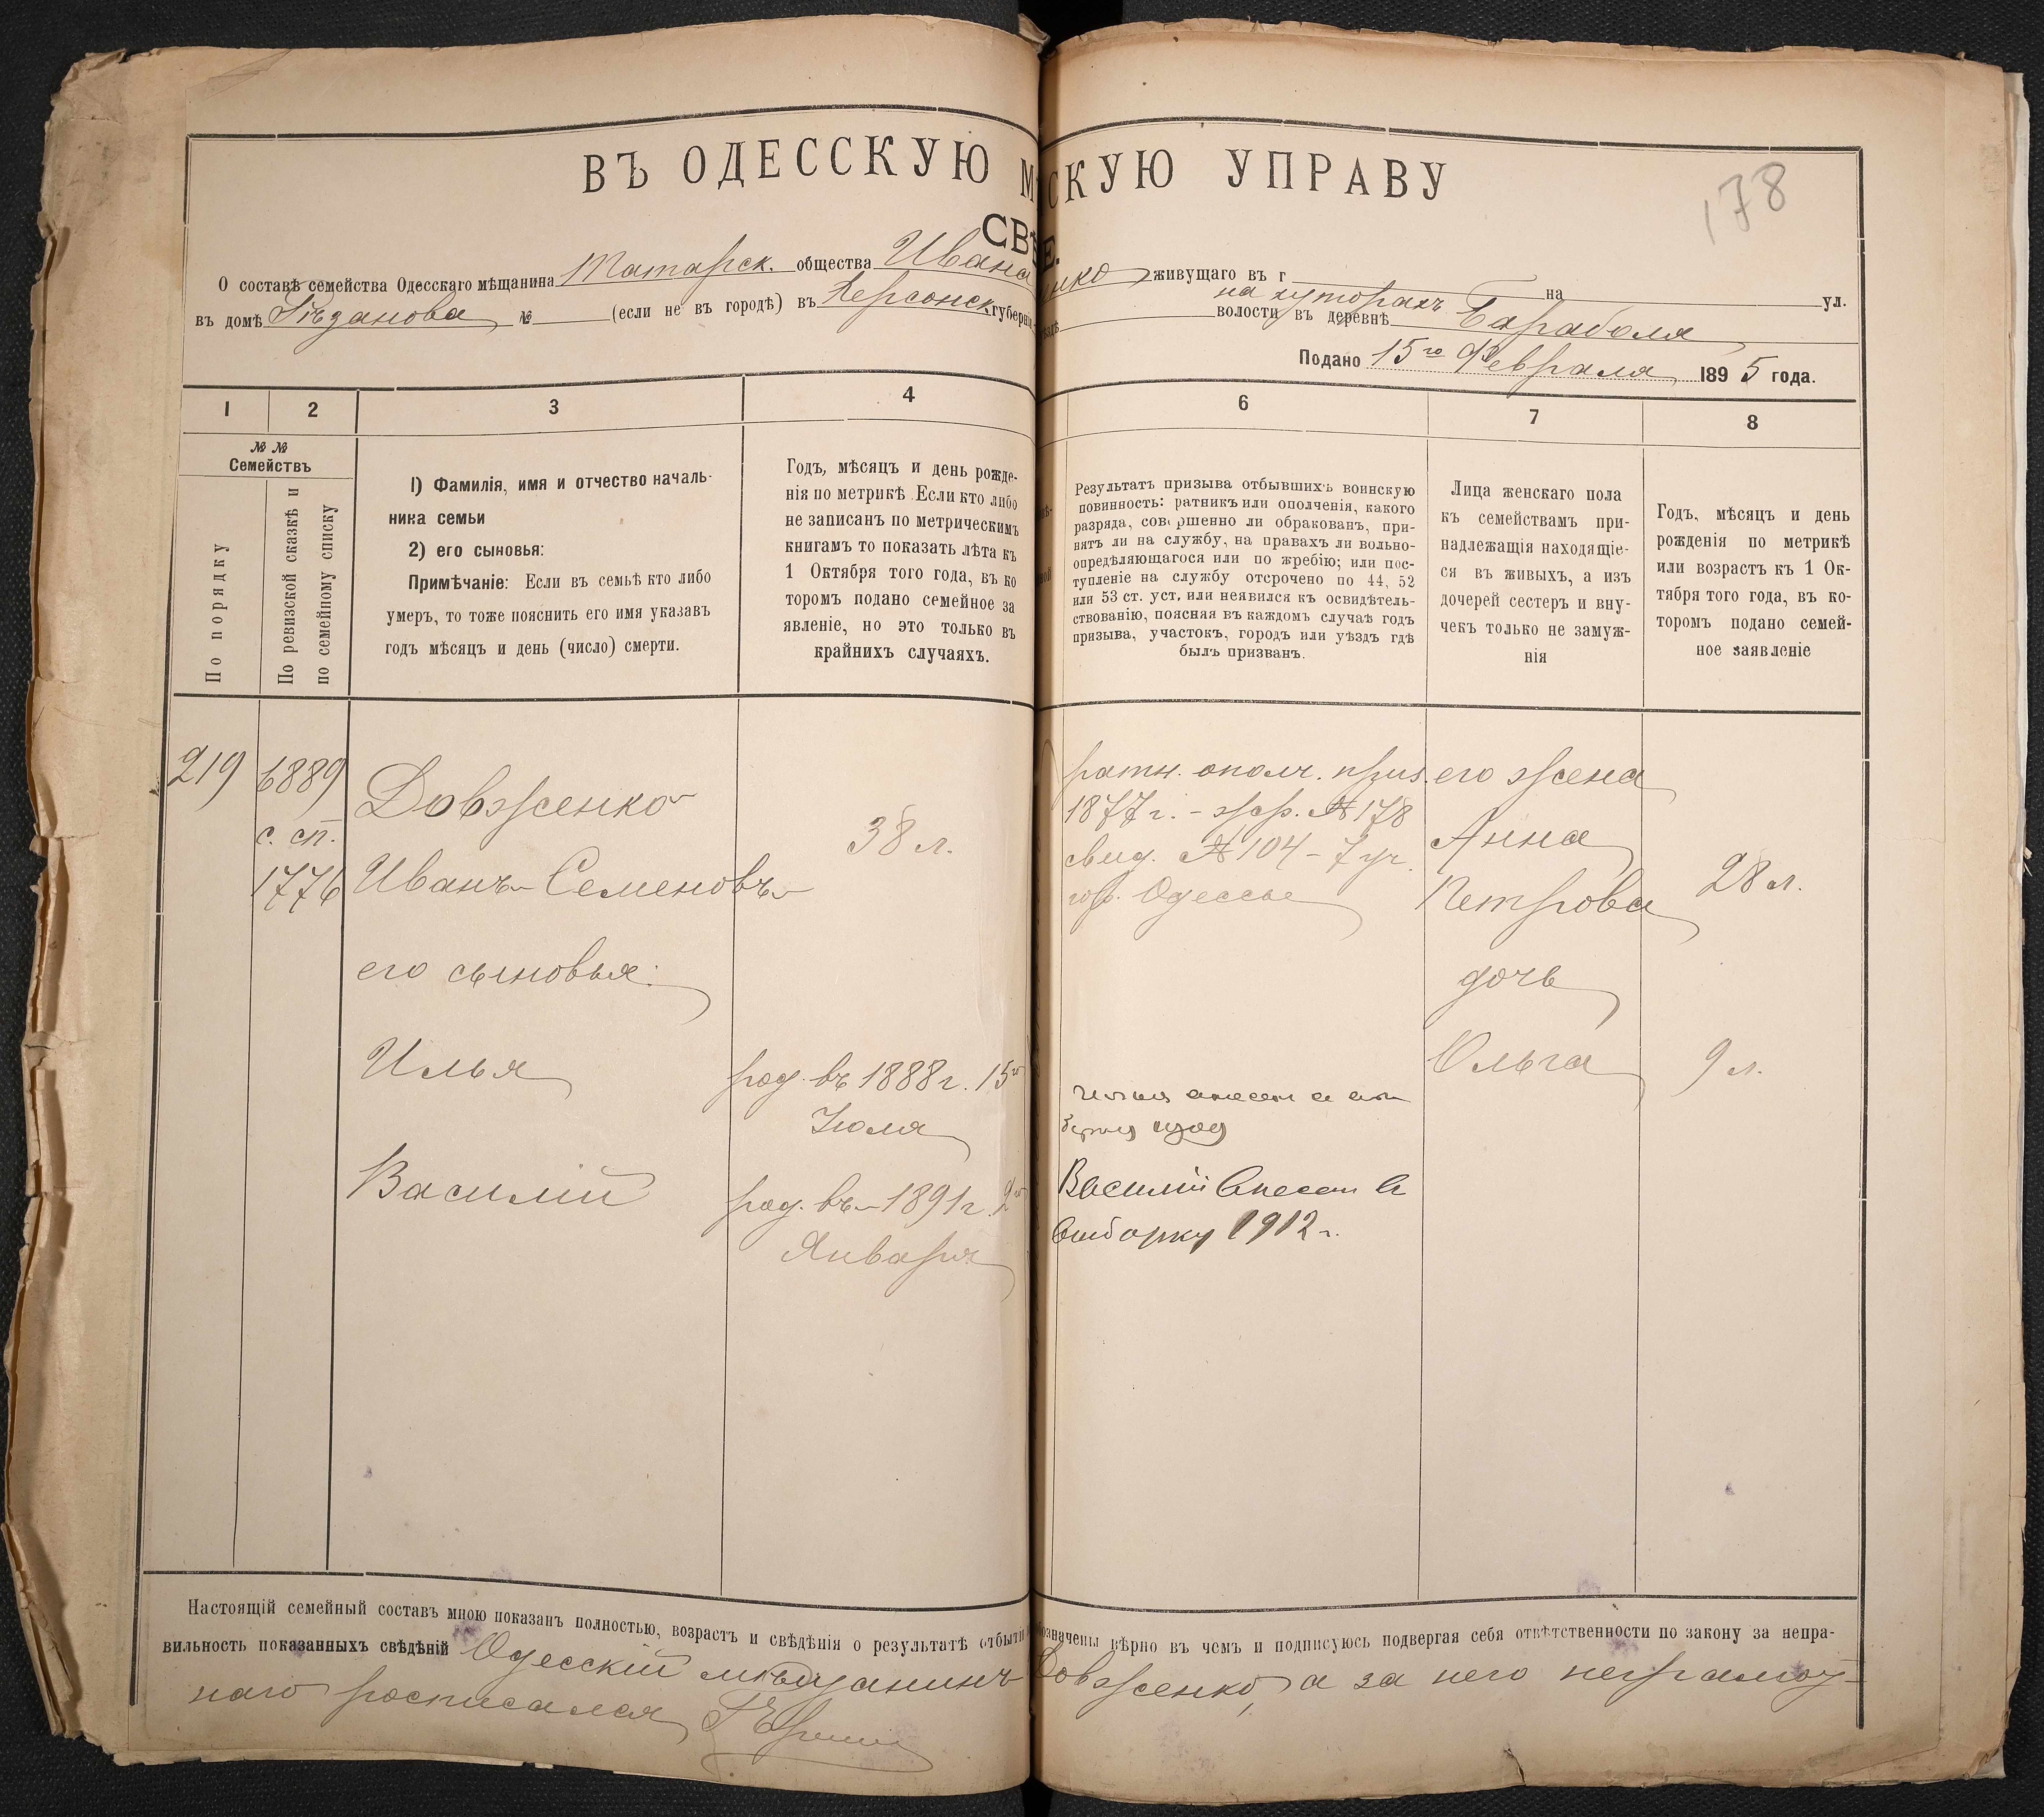 ВЪ ОДЕССКУЮ М СКУЮ УПРАВУ
178
СВѢ Е.
О составѣ семейства Одесскаго мѣщанина Татарск. общества Ивана нко живущаго въ г на ул.
въ домѣ № (если не въ городѣ) въ Херсонск. губерніи уѣздѣ волости въ деревнѣ на хуторахъ Бараболя
Подано 15го Февраля 1895 года.
1 2 3 4 6 7 8
№ № Семействъ
По порядку
По ревизской сказкѣ и по семейному списку
1) Фамилія, имя и отчество началь-
ника семьи
2) его сыновья:
Примѣчаніе: Если въ семьѣ кто либо
умеръ, то тоже пояснить его имя указавъ
годъ мѣсяцъ и день (число) смерти.
Годъ, мѣсяцъ и день рожде-
нія по метрикѣ Если кто либо
не записанъ по метрическимъ
книгамъ то показать лѣта къ
1 Октября того года, въ ко
торомъ подано семейное за
явленіе, но это только въ
крайнихъ случаяхъ.
Результатъ призыва отбывшихъ воинскую
повинность: ратникъ или ополченія, какого
разряда, совершенно ли обракованъ, при-
нятъ ли на службу, на правахъ ли вольно-
опредѣляющагося или по жребію; или пос-
тупленіе на службу отсрочено по 44, 52
или 53 ст. уст, или неявился къ освидѣтель-
ствованію, поясняя въ каждомъ случаѣ годъ
призыва, участокъ, городъ или уѣздъ гдѣ
былъ призванъ.
Лица женскаго пола
къ семействамъ при-
надлежащія находящіе-
ся въ живыхъ, а изъ
дочерей сестеръ и вну-
чекъ только не замуж-
нія
Годъ, мѣсяцъ и день
рожденія по метрикѣ
или возрастъ къ 1 Ок-
тября того года, въ ко-
торомъ подано семей-
ное заявленіе
219
6889
с. сп.
1776
Довженко
Иванъ Семеновъ
38 л.
его сыновья:
Илья
род. въ 1888 г. 15го
Іюля
Василій
род. въ 1891 г. 2го
Января
ратн. ополч. приз.
1877 г. - жр. № 178
свид. № 104 - 7 уч.
гор. Одессы
Василій внесен в
выборку 1912 г.
его жена
Анна
Петрова
28 л.
дочь
Ольга
9 л.
Настоящій семейный составъ мною показанъ полностью, возрастъ и свѣдѣнія о результатѣ отбыті означены вѣрно въ чемъ и подписуюсь подвергая себя отвѣтственности по закону за непра-
вильность показанныхъ свѣдѣній Одесскій мѣщанинъ Довженко, а за него неграмот-
наго росписался